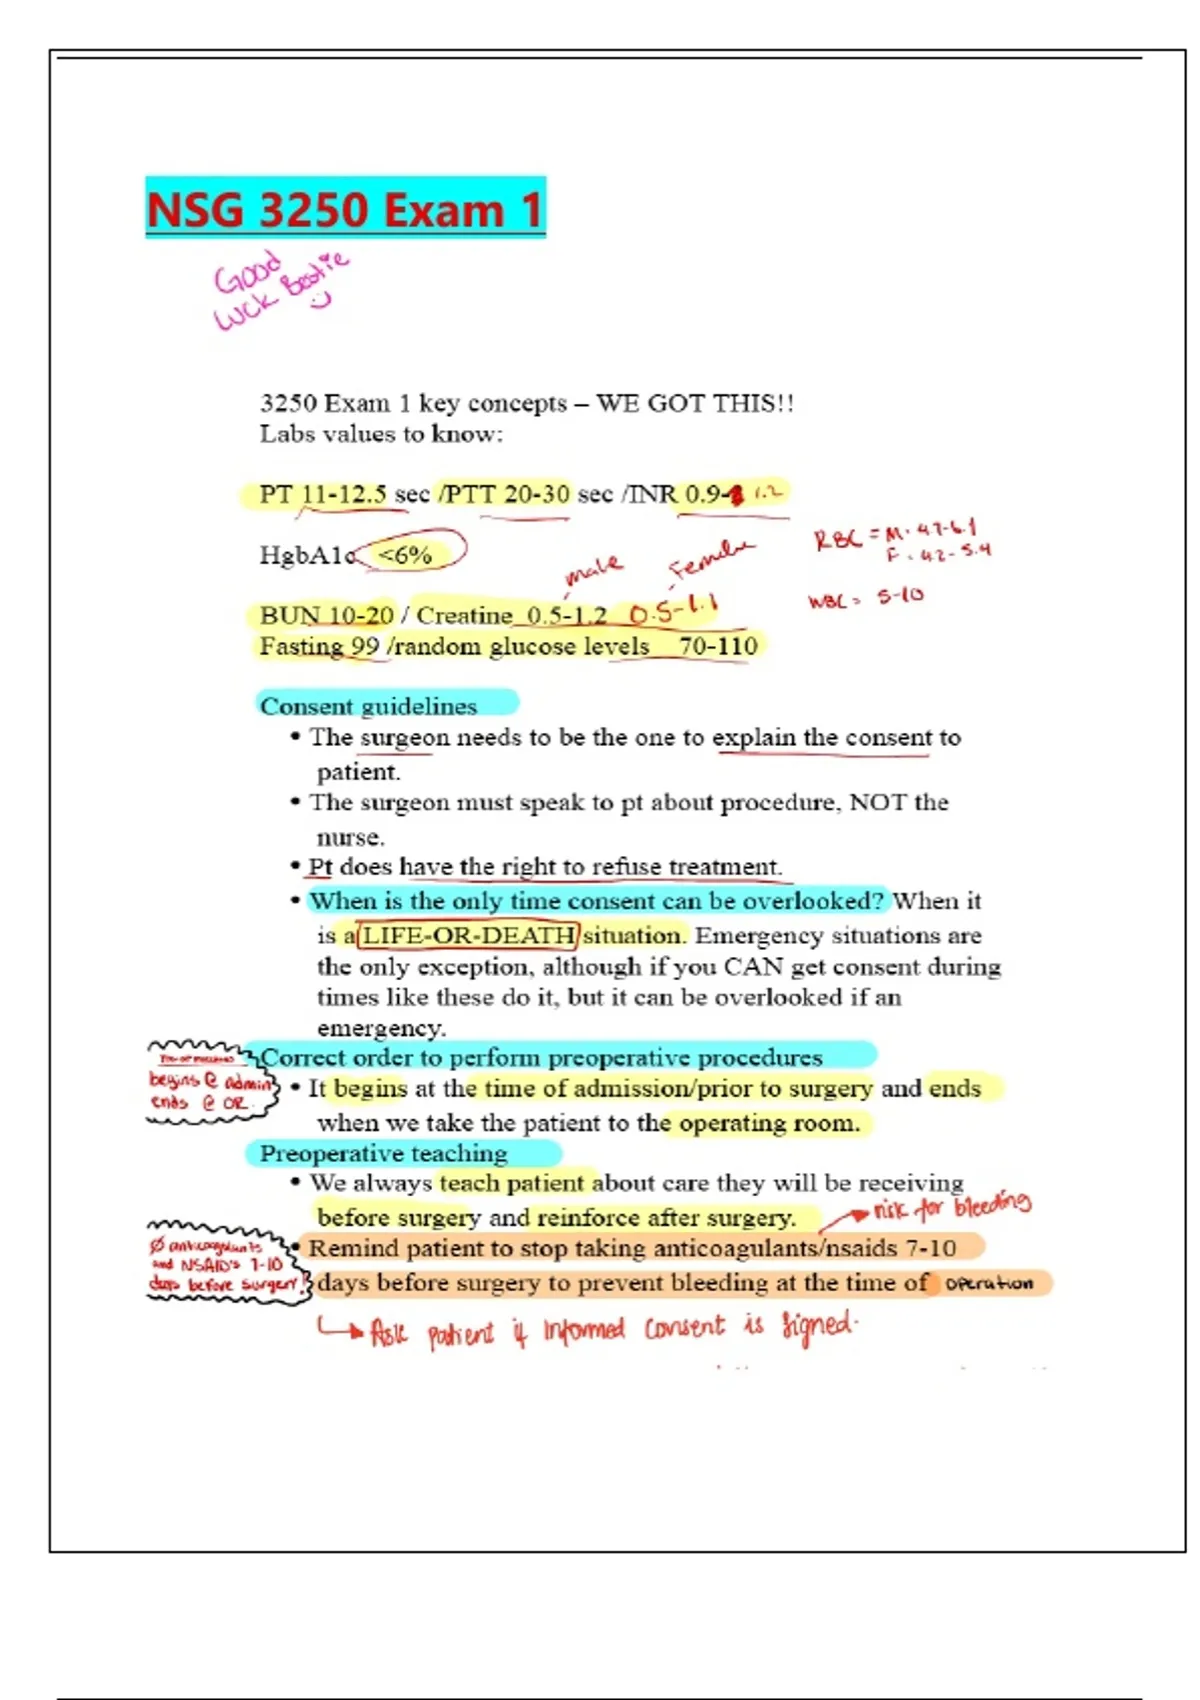 NSG 3250 Exam 1
Good
Luck Bestie
3250 Exam 1 key concepts – WE GOT THIS!!
Labs values to know:
PT 11-12.5 sec /PTT 20-30 sec /INR 0.9- 1.2
RBC = M· 4.7-6.1
F· 4.2-5.4
HgbA1c <6%
male Female
WBC = 5-10
BUN 10-20 / Creatine 0.5-1.2 0.5-1.1
Fasting 99 /random glucose levels 70-110
Consent guidelines
• The surgeon needs to be the one to explain the consent to
patient.
• The surgeon must speak to pt about procedure, NOT the
nurse.
• Pt does have the right to refuse treatment.
• When is the only time consent can be overlooked? When it
is a LIFE-OR-DEATH situation. Emergency situations are
the only exception, although if you CAN get consent during
times like these do it, but it can be overlooked if an
emergency.
Correct order to perform preoperative procedures
begins @ admin
ends @ OR.
• It begins at the time of admission/prior to surgery and ends
when we take the patient to the operating room.
Preoperative teaching
• We always teach patient about care they will be receiving
before surgery and reinforce after surgery.
risk for bleeding
Ø anticoagulants
and NSAID's 7-10
days before surgery!
• Remind patient to stop taking anticoagulants/nsaids 7-10
days before surgery to prevent bleeding at the time of operation
Ask patient if informed consent is signed.